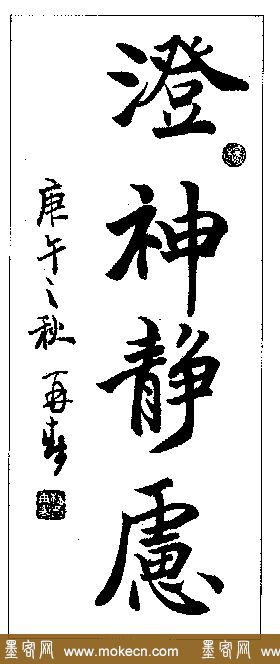 澄神静慮
庚午之秋 再春
墨客网 www.mokecn.com 墨客网 www.m